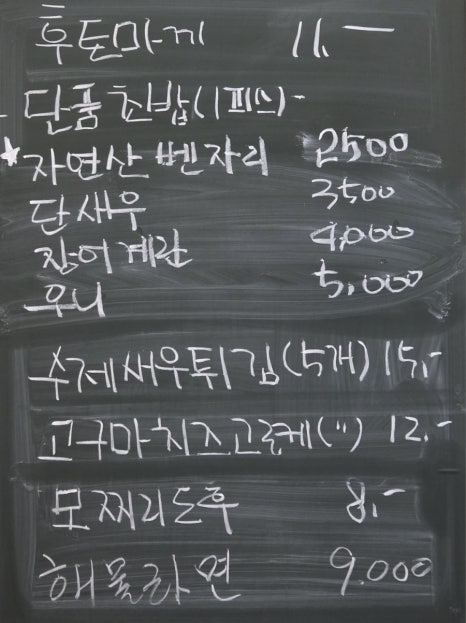 후토마끼 11.-
- 단품초밥(1피스)-
★자연산벤자리 2500
단새우 3500
장어계란 4,000
우니 5,000
수제새우튀김(5개) 15,-
고구마치즈고로케(") 12.-
모찌리도후 8.-
해물라면 9.000